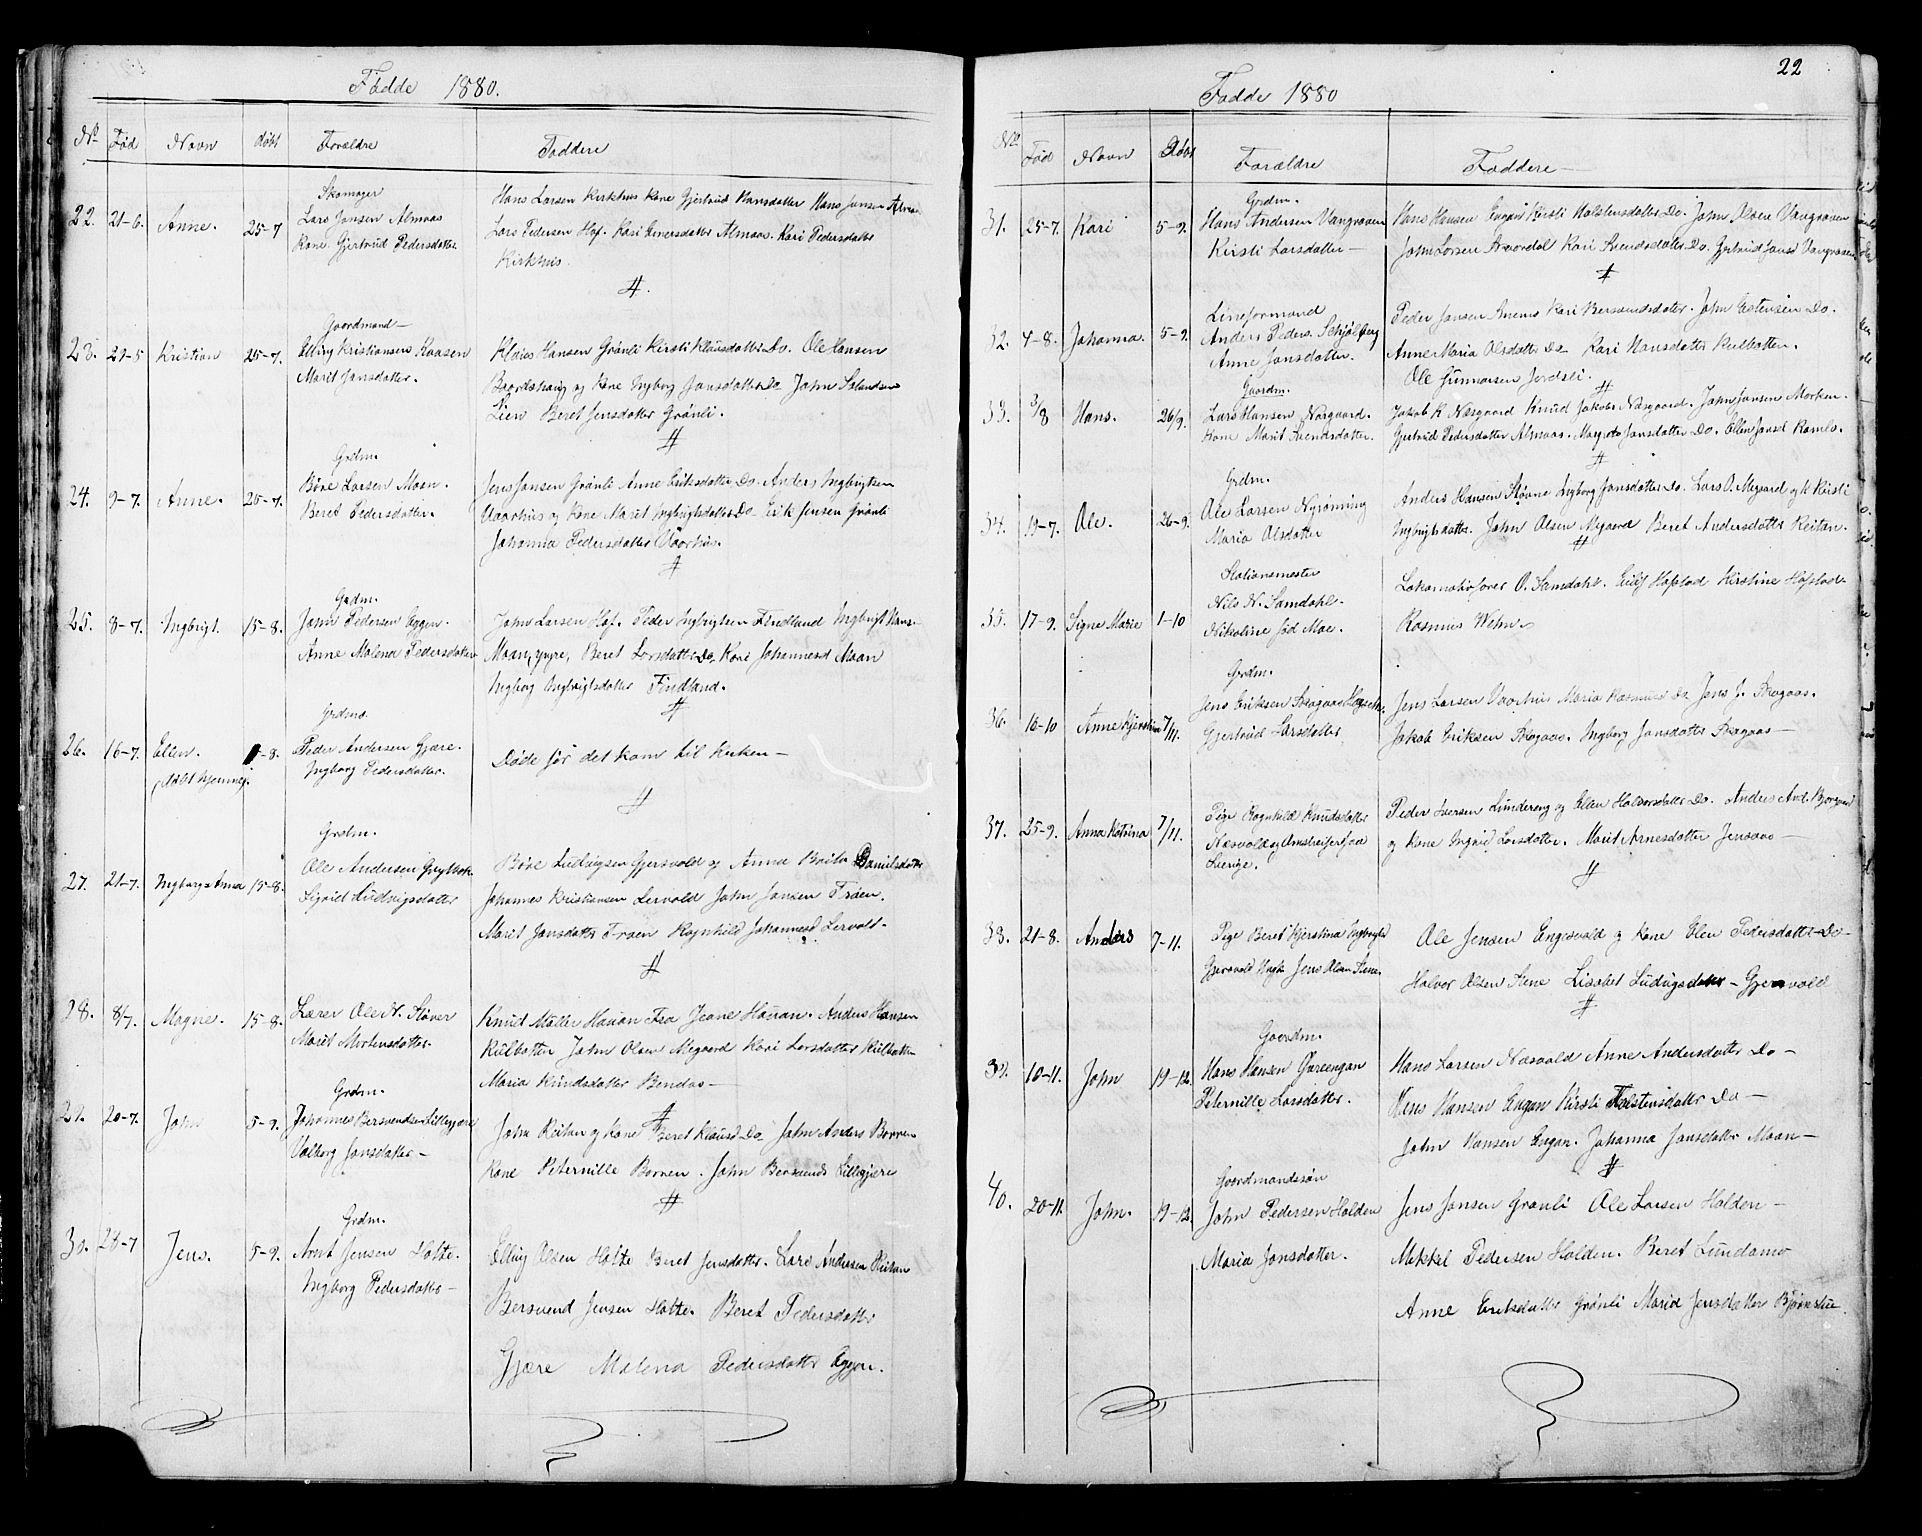 Fødde 1880.
No Fød Navn døbt Forældre Faddere
Skomager
22. 21-6. Anne. 25-7 Lars Jansen Almaas Hans Larsen Kirkhus Kone Gjertrud Hansdatter Hans Jansen Almaas
Kone Gjertrud Pedersdatter Lars Pedersen Hof. Kari Everesdatter Almaas. Kari Pedersdatter
Kirkhus.
Gaardmand
23. 29-5 Kristian 25-7. Elling Kristiansens Kaasen Klaus Hansen Grønli Kirsti Klausdatter Do. Ole Hansen
Marit Jansdatter. Baardshaug og Kone Ingborg Jansdatter Do John
Lien Beret Jensdatter Grønli.
Grdm.
24. 9-7. Anne. 25-7. Børe Larsen Moan. Jens Jansen Grønli Anne Eriksdatter Do. Anders Ingbrigtsen
Beret Pedersdatter. Vaarhus og Kone Marit Ingbrigtsdatter Do Erik Jensen Grønli
Johanna Pedersdatter Vaarhus.
Grdm.
25. 8-7. Ingbrigt. 15-8. John Pedersen Eggen. John Larsen Hof. Peder Ingbrigtsen Findland Ingbrigt Hans.
Anne Malena Pedersdatter Moan, yngre, Beret Larsdatter Do Kari Johannesd Moan
Ingborg Ingbrigtsdatter Findland.
Grdms
26. 16-7. Ellen. 1-8. Peder Andersen Gjære. Døde før det kom til Kirken
døbt hjemme Ingborg Pedersdatter.
Grdm.
27. 21-7. Ingborg Anna 15-8. Ole Andersen Børe Ludvigsen Gjersvold og Anna Brita Danielsdatter
Sigrid Ludvigsdatter Johannes Kristiansen Lervold John Jansen Frøen.
Marit Jansdatter Frøen Ragnhild Johannesd Lervold.
28. 8/7. Magne. 15-8. Lærer Ole N. Støver Knud Møller Hauan Fra Jeane Hauan. Anders Hansen
Marit Mortensdatter. Kulbotten John Olsen Megaard Kari Larsdatter Kulbotten
Maria Knudsdatter Bendos
Grdm.
29. 20-7. John 5-9. Johannes Bersvendsen Lillegjære John Reitan og Kone Beret Klausd Do John Anders Borren
Valborg Jansdatter Kone Peternille Borren. John Bersvends Lillegjære
Grdm.
30. 28-7 Jens. 5-9. Arnt Jensen Holte. Elling Olsen Holte Beret Jensdatter. Lars Andersen Reitan
Ingborg Pedersdatter Bersvend Jensen Holte. Beret Pedersdatter
Gjære Malena Pedersdatter Eggen.
22
Fødde 1880
No Fød Navn Døbt Forældre Faddere
Grdm.
31. 25-7. Kari 5-9. Hans Andersen Vangraven Hans Hansen Engan Kirsti Holstensdatter Do. John Olsen Vangraven
Kirsti Larsdatter John Larsen Kari Svendsdatter Do. Gjertrud Jansd Vangraven
Lineformand
32. 4-8. Johanna 5-9. Anders Peders. Schjølberg Peder Jansen Kari Bersvendsdatter. John Estensen Do.
Anne Jansdatter. Anne Maria Olsdatter Do Kari Hansdatter Kulbotten.
Ole Gunnarsen Jordsli.
Gaardm.
33. 3/8 Hans. 26/9. Lars Hansen Norgaard. Jakob K Næsgaard Knud Jakobs Næsgaard. John Jansen Morken.
Kone Marit Svendsdatter. Gjertrud Pedersdatter Almaas. Margrete Jansdatter Do. Ellen Jansd Ramlo.
Grdm.
34. 19-7. Ole. 26-9. Ole Larsen Nyrønning Anders Hansen Støvne Ingborg Jansdatter Do. Lars O. Megaard og K Kirsti
Maria Olsdatter Ingbrigtsdatter. John Olsen Megaard Beret Andersdatter Reitan.
Stationsmester
35. 17-9. Signe Marie 1-10 Nils N. Samdahl. Lokomotivfører O. Samdahl. Eilif Hofstad Kirstine Hofstad
Nikoline fød Moe. Rasmus Wehn
Grdm.
36. 16-10 Anne Kjerstina 7/11. Jens Eriksen Skogaas Jens Larsen Vaarhus Maria Rasmusd Do Jens J. Skogaas.
Gjertrud Larsdatter Jakob Eriksen Skogaas. Ingborg Jansdatter Skogaas
37. 25-9. Anna Katrina 7/11. Pige Ragnhild Knudsdatter Peder Iversen Lundereng og Ellen Halvorsdatter Do. Anders And.
Næsvold og fra og Kone Ingrid Larsdatter. Marit Arnesdatter Jensaas
Sverige.
38. 21-8. Anders 7-11. Pige Beret Kjerstina Ingbrigtsd Ole Jensen Engesvold og Kone Elen Pedersdatter Do
Gjersvold Ungk Jens Olsen Stene. Halvor Olsen Stene Lisabet Ludvigsdatter Gjersvold
Gaardm.
39. 10-11. John 19-12. Hans Hansen Gareengan Hans Larsen Næsvold Anne Andersdatter Do
Peternille Larsdatter. Hans Hansen Engan Kirsti Holstensdatter Do
John Hansen Engan. Johanna Jansdatter Moan
Gaardmandssøn
40. 20-11. John. 19-12. John Pedersen Halden Jens Jansen Grønli Ole Larsen Halden
Maria Jansdatter. Mikkel Pedersen Halden. Beret Lundamo
Anne Eriksdatter Grønli Maria Jensdatter Bjørnstu.